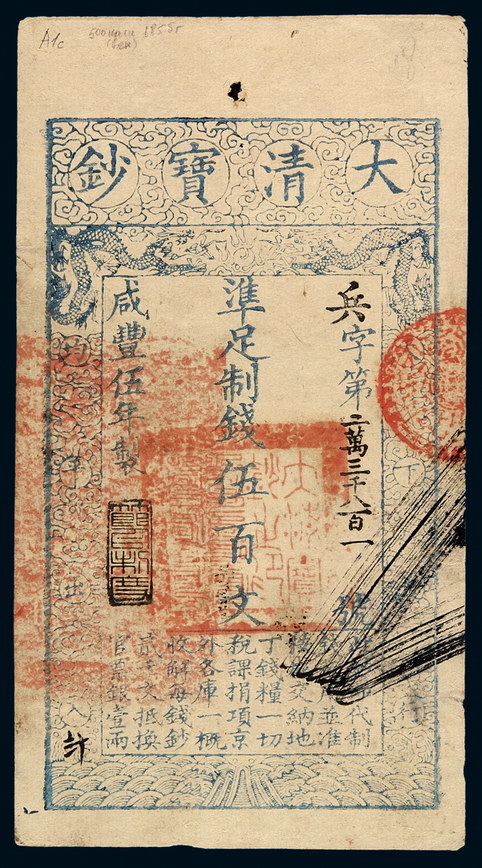 A1c
大清寶鈔
兵字第二萬三千八百一號
準足制錢伍百文
咸豐伍年製
代制
並准
交納地
丁錢糧一切
稅課捐項京
外各庫一概
收解每錢鈔
貳千文抵換
官票銀壹兩